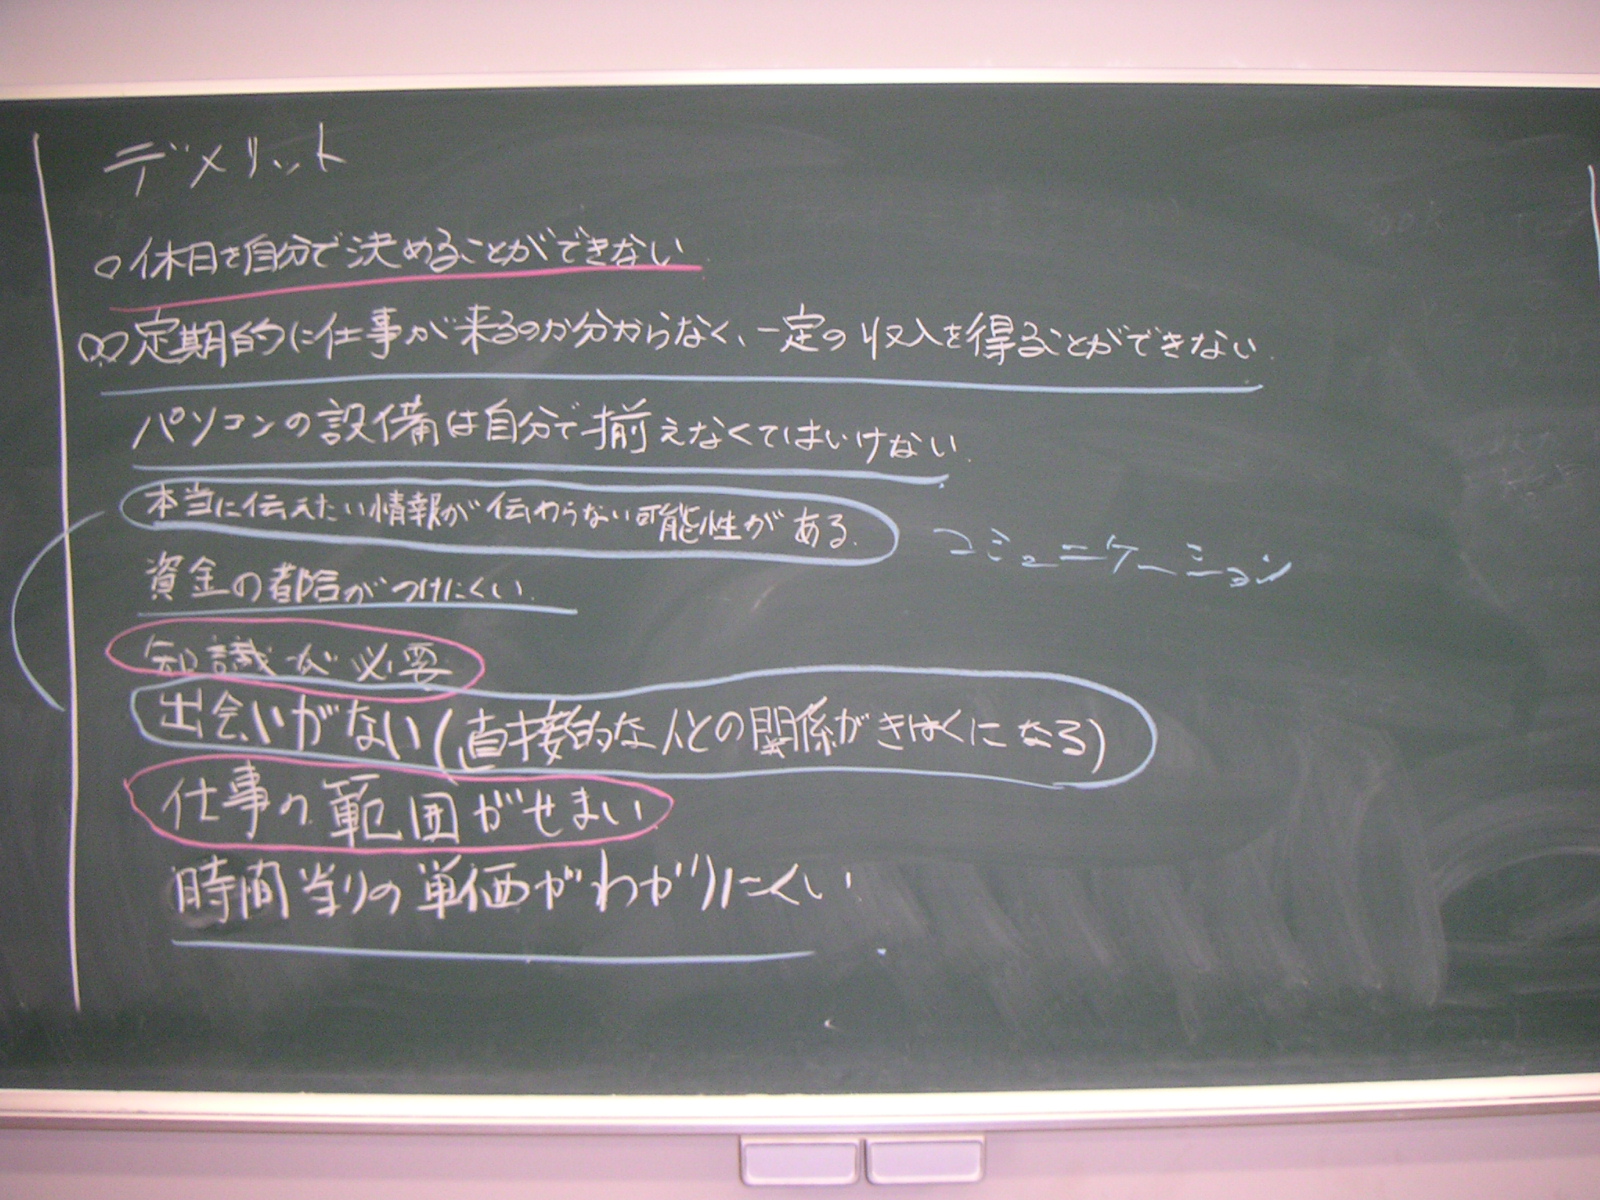 デメリット
○休日を自分で決めることができない
○○定期的に仕事が来るのか分からなく、一定の収入を得ることができない.
パソコンの設備は自分で揃えなくてはいけない.
本当に伝えたい情報が伝わらない可能性がある.
コミュニケーション
資金の都合がつけにくい.
知識が必要
出会いがない(直接的な人との関係がきはくになる)
仕事の範囲がせまい
時間当りの単価がわかりにくい.